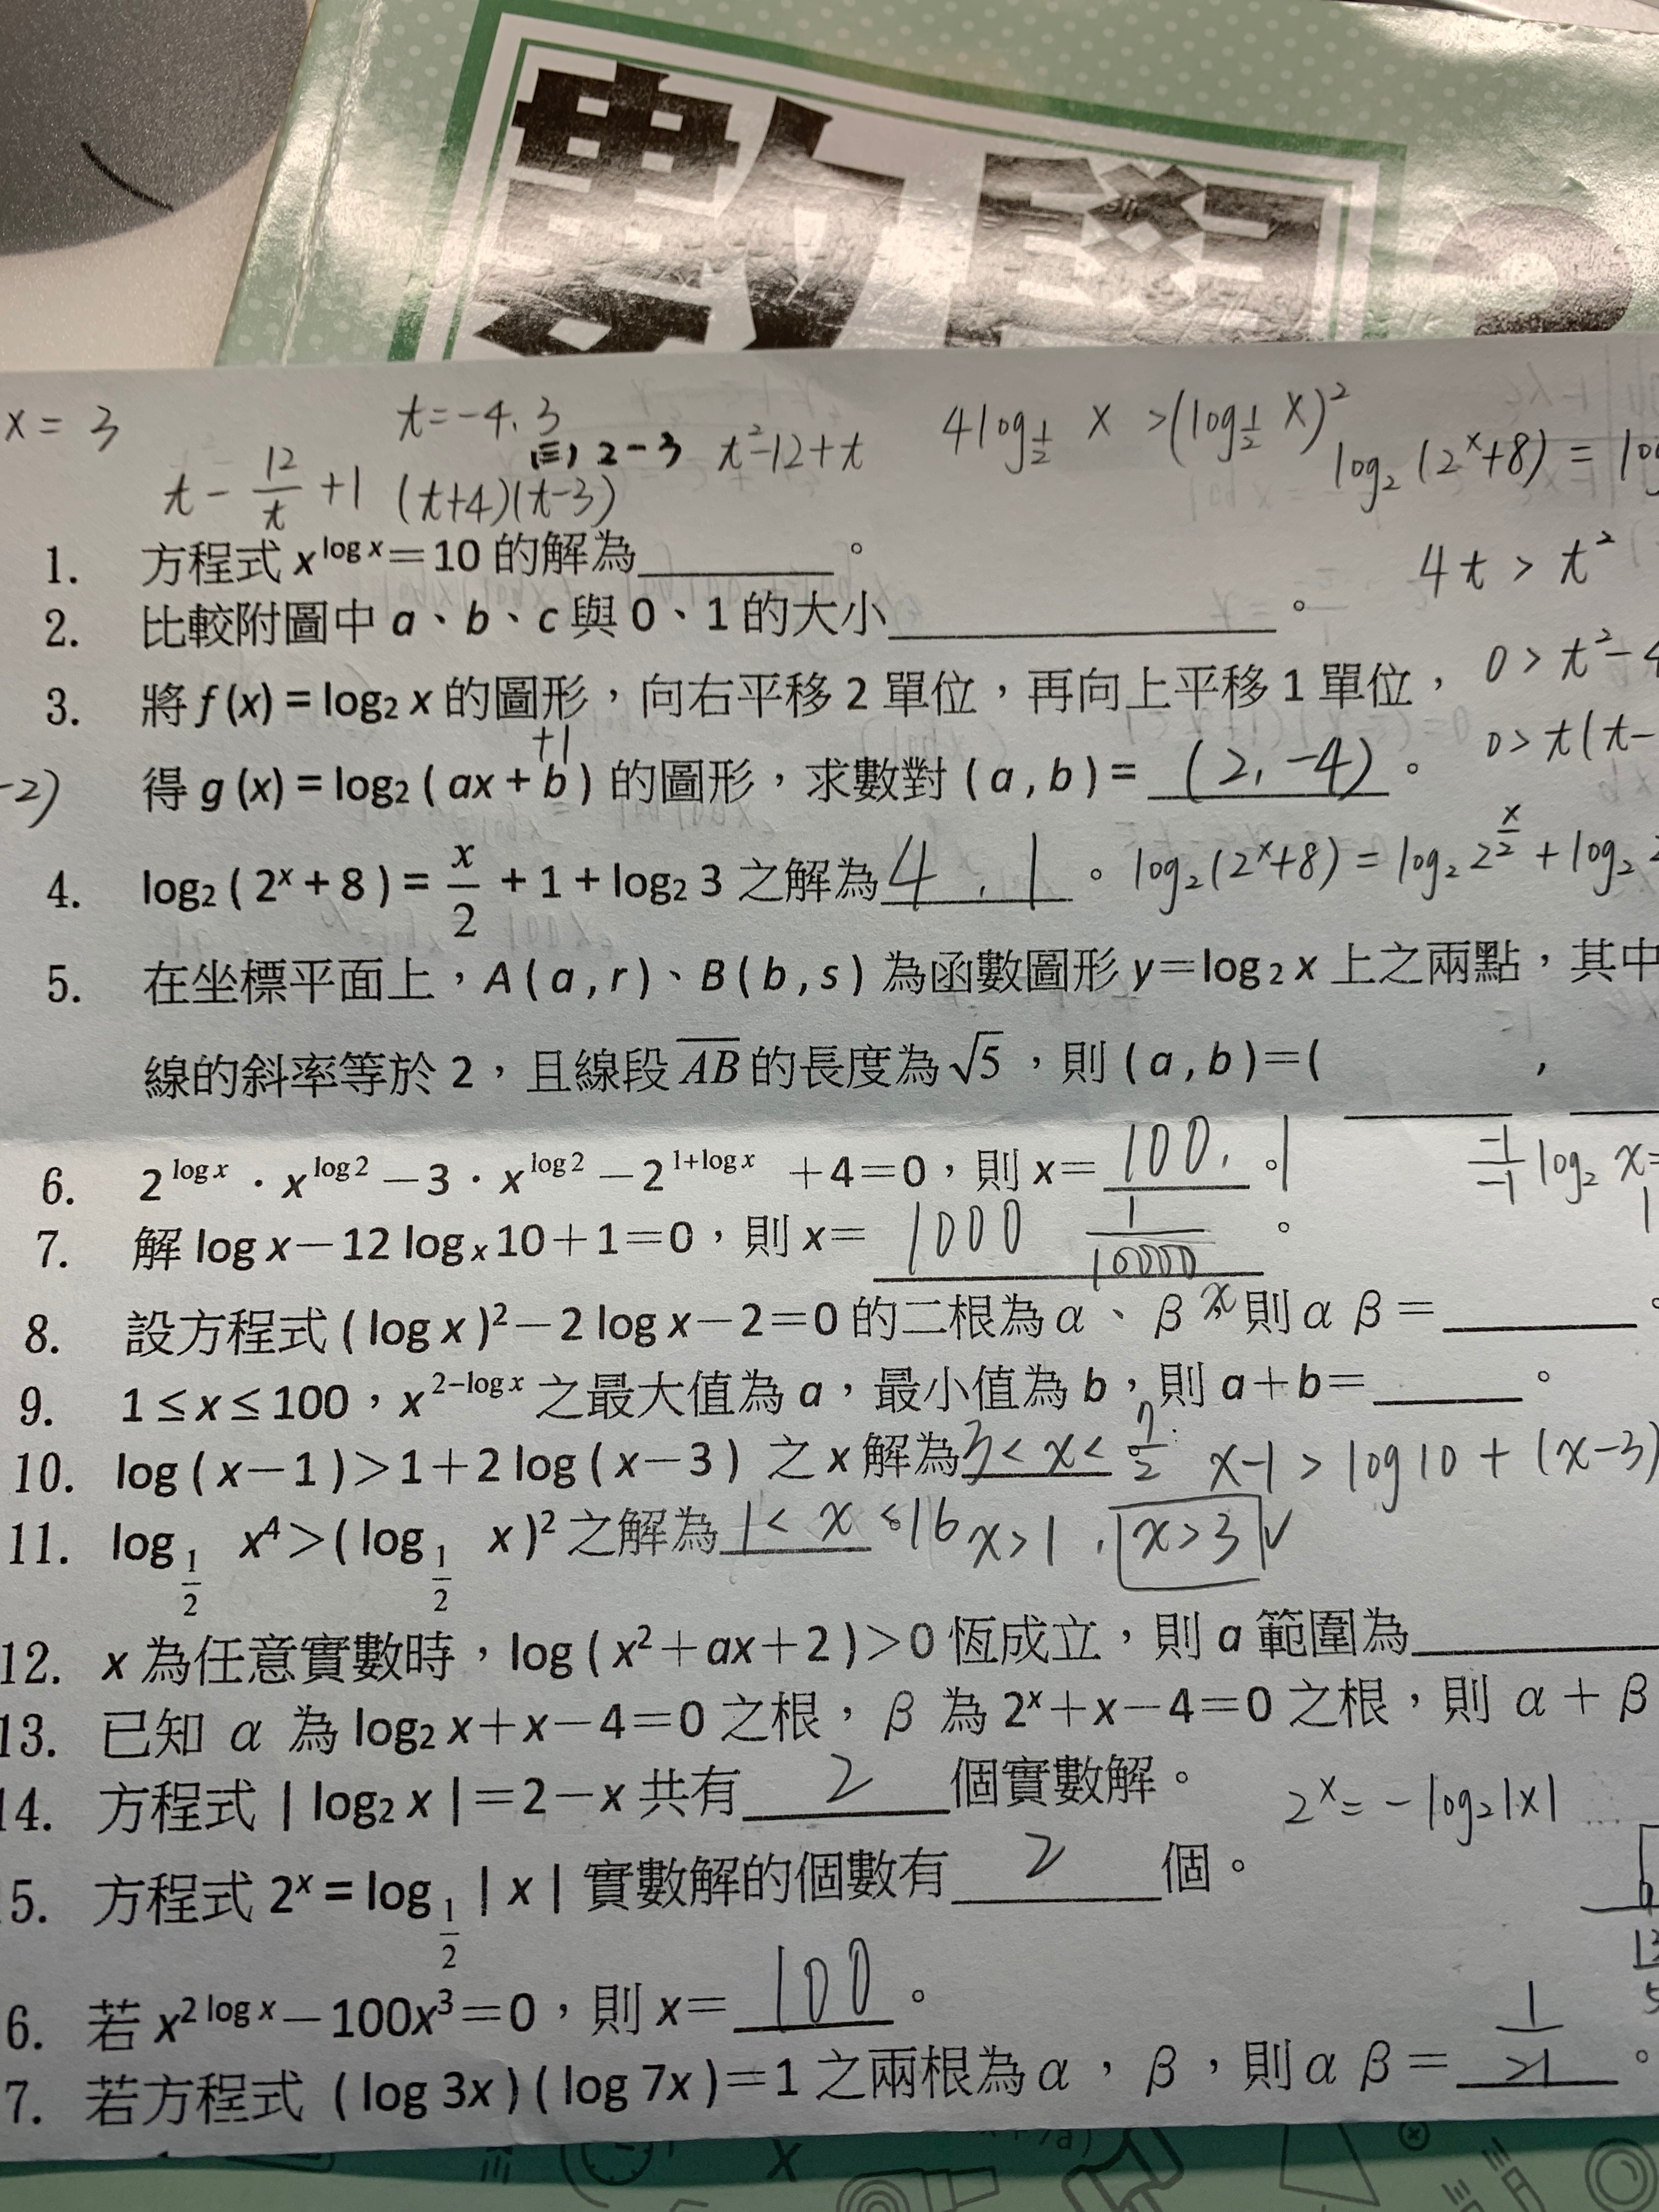 數學
x = 3
t = -4, 3
(三) 2-3
t²-12+t
4log½ x >(log½ x)²
log₂(2ˣ+8) =
t - 12/t +1
(t+4)(t-3)
1. 方程式 x^(log x)=10 的解為______。
4t > t²
2. 比較附圖中 a、b、c 與 0、1 的大小______。
3. 將 f (x) = log₂ x 的圖形,向右平移 2 單位,再向上平移 1 單位,
0 > t²-4
+1
0 > t(t-
-2)
得 g (x) = log₂ ( ax + b ) 的圖形,求數對 ( a , b ) = (2, -4)。
4. log₂ ( 2ˣ + 8 ) = x/2 + 1 + log₂ 3 之解為 4, 1。
log₂(2ˣ+8) = log₂ 2^(x/2) + log₂ 2
5. 在坐標平面上,A ( a , r )、B ( b , s ) 為函數圖形 y=log₂ x 上之兩點,其中
線的斜率等於 2,且線段 AB 的長度為 √5,則 ( a , b )=( ,
6. 2^(log x)・x^(log 2)-3・x^(log 2)-2^(1+log x) +4=0,則 x= 100, 1。
-1/-1 log₂ x=
7. 解 log x-12 logₓ 10+1=0,則 x= 1000 1/10000。
8. 設方程式 ( log x )²-2 log x-2=0 的二根為 α、β 則 α β=______。
9. 1≤x≤100,x^(2-log x) 之最大值為 a,最小值為 b,則 a+b=______。
10. log ( x-1 )>1+2 log ( x-3 ) 之 x 解為 3< x < 7/2
x-1 > log10 + (x-3)
11. log½ x⁴>( log½ x )² 之解為 1< x <16
x>1, x>3 ✓
12. x 為任意實數時,log ( x²+ax+2 )>0 恆成立,則 a 範圍為______
13. 已知 α 為 log₂ x+x-4=0 之根,β 為 2ˣ+x-4=0 之根,則 α+β
14. 方程式 | log₂ x |=2-x 共有 2 個實數解。
2ˣ= -log₂|x|
5. 方程式 2ˣ = log½ | x | 實數解的個數有 2 個。
6. 若 x^(2 log x)-100x³=0,則 x= 100。
7. 若方程式 ( log 3x ) ( log 7x )=1 之兩根為 α,β,則 α β= 1/21。